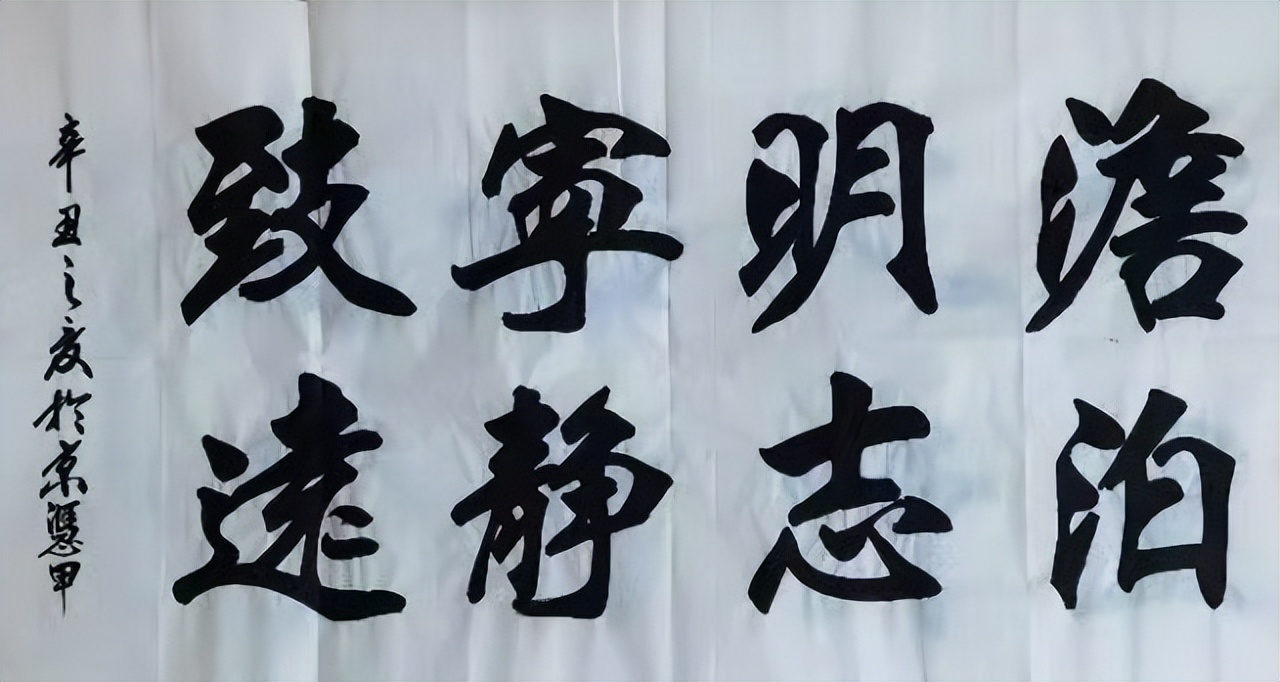 澹泊
明志
寧静
致遠
辛丑之夏於京憑甲